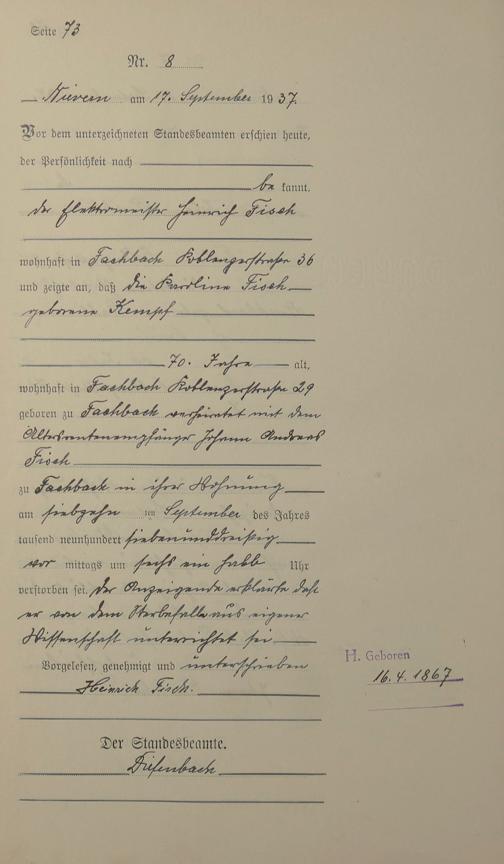 Seite 73
Nr. 8
Nievern am 17. September 1937.
Vor dem unterzeichneten Standesbeamten erschien heute,
der Persönlichkeit nach
be kannt,
der Elektromeister Heinrich Fisch
wohnhaft in Fachbach Koblenzerstraße 36
und zeigte an, daß die Karoline Fisch
geborene Kempf
70. Jahre alt,
wohnhaft in Fachbach Koblenzerstraße 29
geboren zu Fachbach verheiratet mit dem
Altersrentenempfänger Johann Andreas
Fisch
zu Fachbach in ihrer Wohnung
am siebzehn ten September des Jahres
tausend neunhundert siebenunddreißig
vor mittags um sechs ein halb Uhr
verstorben sei. Der Anzeigende erklärte daß
er von dem Sterbefalle aus eigener
Wissenschaft unterrichtet sei
Vorgelesen, genehmigt und unterschrieben
Heinrich Fisch.
H. Geboren
16.4.1867
Der Standesbeamte.
Diefenbach